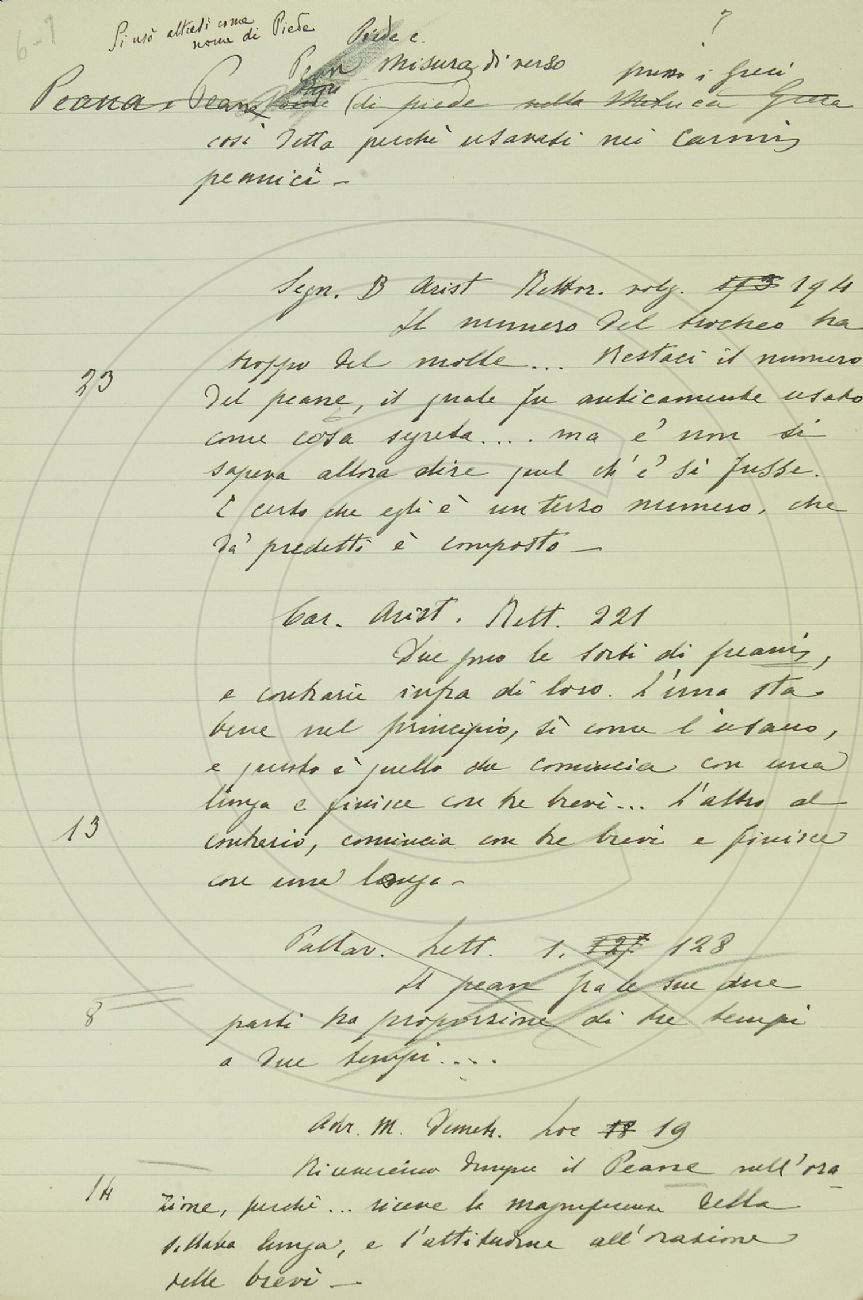 6-7
Si usò altresì come
nome di Piede
Piede e
?
Pean misura di verso presso i Greci
Peana e Peane (di piede nella Metrica Greca
così detta perchè usavasi nei Carmi
peanici –
Segn. B Arist Rettor. volg. 193 194
Il numero del trocheo ha
troppo del molle... Restaci il numero
23
del peane, il quale fu anticamente usato
come cosa sgreta.... ma e' non si
sapeva allora dire quel ch'e' si fusse.
E certo che egli è un terzo numero, che
da' predetti è composto –
Car. Arist. Rett. 221
Due sono le sorti di peani,
e contrarie infra di loro. L'una sta
bene nel principio, sì come l'usano,
e questo è quello che comincia con una
lunga e finisce con tre brevi... L'altro al
13
contrario, comincia con tre brevi e finisce
con una lunga –
Pallav. Lett. 1. 127 128
Il pean fra le sue due
8
parti ha proporzione di tre tempi
a due tempi....
Adr. M. Demetr. Loc 18 19
Riceveremo dunque il Peane nell'ora
14
zione, perchè... riceve la magnificenza della
sillaba lunga, e l'attitudine all'orazione
delle brevi –